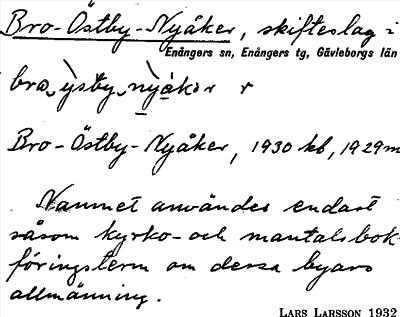 Bro-Östby-Nyåker, skifteslag i
Enångers sn, Enångers tg, Gävleborgs län
bro, ỳstby, nỳåkər r
Bro-Östby-Nyåker, 1930 kb, 1929 m
Namnet användes endast
såsom kyrko- och mantalsbok-
föringsterm om dessa byars
allmänning.
LARS LARSSON 1932